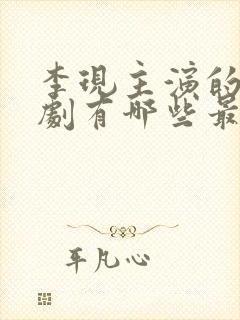 李現主演的
劇有哪些最
平凡心